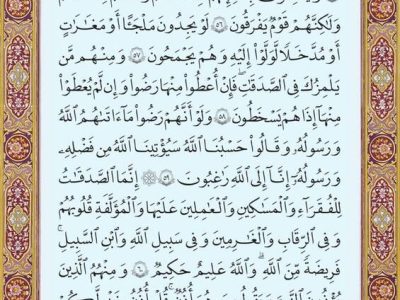 وَلَٰكِنَّهُمْ قَوْمٌ يَفْرَقُونَ ۝٥٦ لَوْ يَجِدُونَ مَلْجَـًٔا أَوْ مَغَٰرَٰتٍ
أَوْ مُدَّخَلًا لَّوَلَّوْا۟ إِلَيْهِ وَهُمْ يَجْمَحُونَ ۝٥٧ وَمِنْهُم مَّن
يَلْمِزُكَ فِى ٱلصَّدَقَٰتِ فَإِنْ أُعْطُوا۟ مِنْهَا رَضُوا۟ وَإِن لَّمْ يُعْطَوْا۟
مِنْهَآ إِذَا هُمْ يَسْخَطُونَ ۝٥٨ وَلَوْ أَنَّهُمْ رَضُوا۟ مَآ ءَاتَىٰهُمُ ٱللَّهُ
وَرَسُولُهُۥ وَقَالُوا۟ حَسْبُنَا ٱللَّهُ سَيُؤْتِينَا ٱللَّهُ مِن فَضْلِهِۦ
وَرَسُولُهُۥٓ إِنَّآ إِلَى ٱللَّهِ رَٰغِبُونَ ۝٥٩ ۞ إِنَّمَا ٱلصَّدَقَٰتُ
لِلْفُقَرَآءِ وَٱلْمَسَٰكِينِ وَٱلْعَٰمِلِينَ عَلَيْهَا وَٱلْمُؤَلَّفَةِ قُلُوبُهُمْ
وَفِى ٱلرِّقَابِ وَٱلْغَٰرِمِينَ وَفِى سَبِيلِ ٱللَّهِ وَٱبْنِ ٱلسَّبِيلِ ۖ
فَرِيضَةً مِّنَ ٱللَّهِ ۗ وَٱللَّهُ عَلِيمٌ حَكِيمٌ ۝٦٠ وَمِنْهُمُ ٱلَّذِينَ